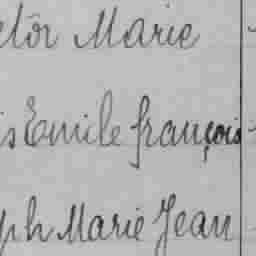 ctôr Marie
is Emile françois
ph Marie Jean